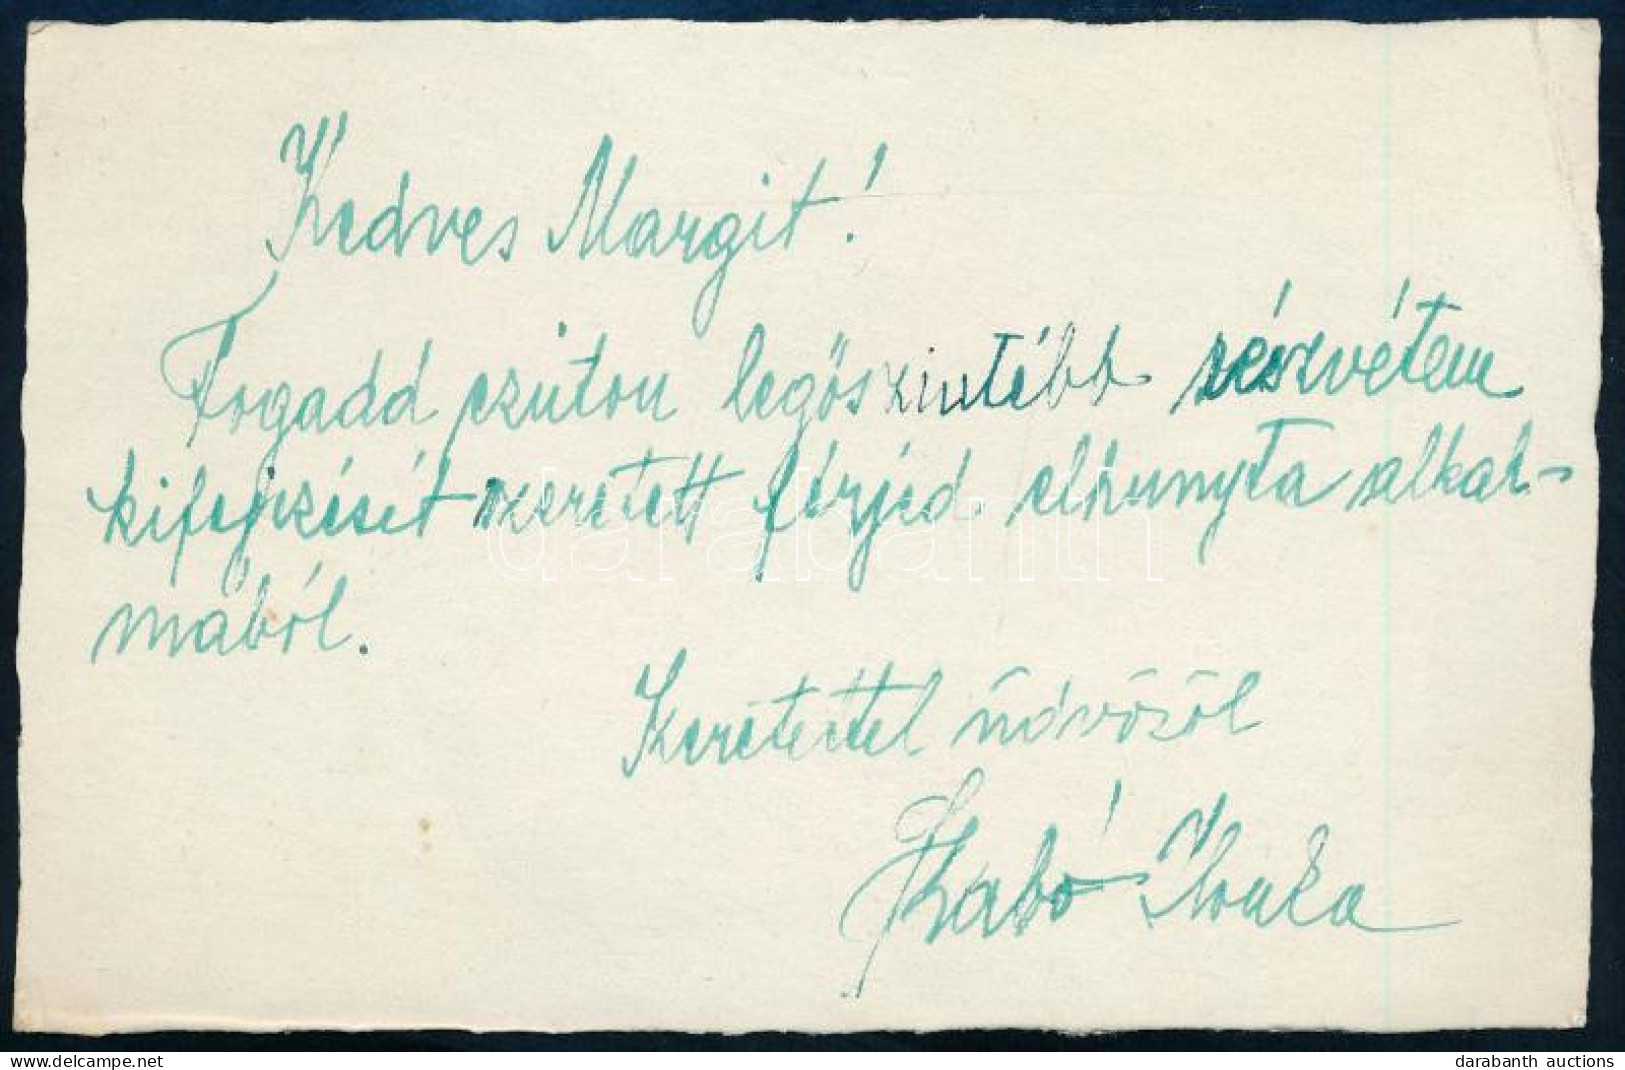 Kedves Margit!
Fogadd ezúton legőszintébb részvétem
kifejezését szeretett férjed elhunyta alkal-
mából.
Szeretettel üdvözöl
Szabó Ilonka
darabanth
www.delcampe.net
darabanth auctions